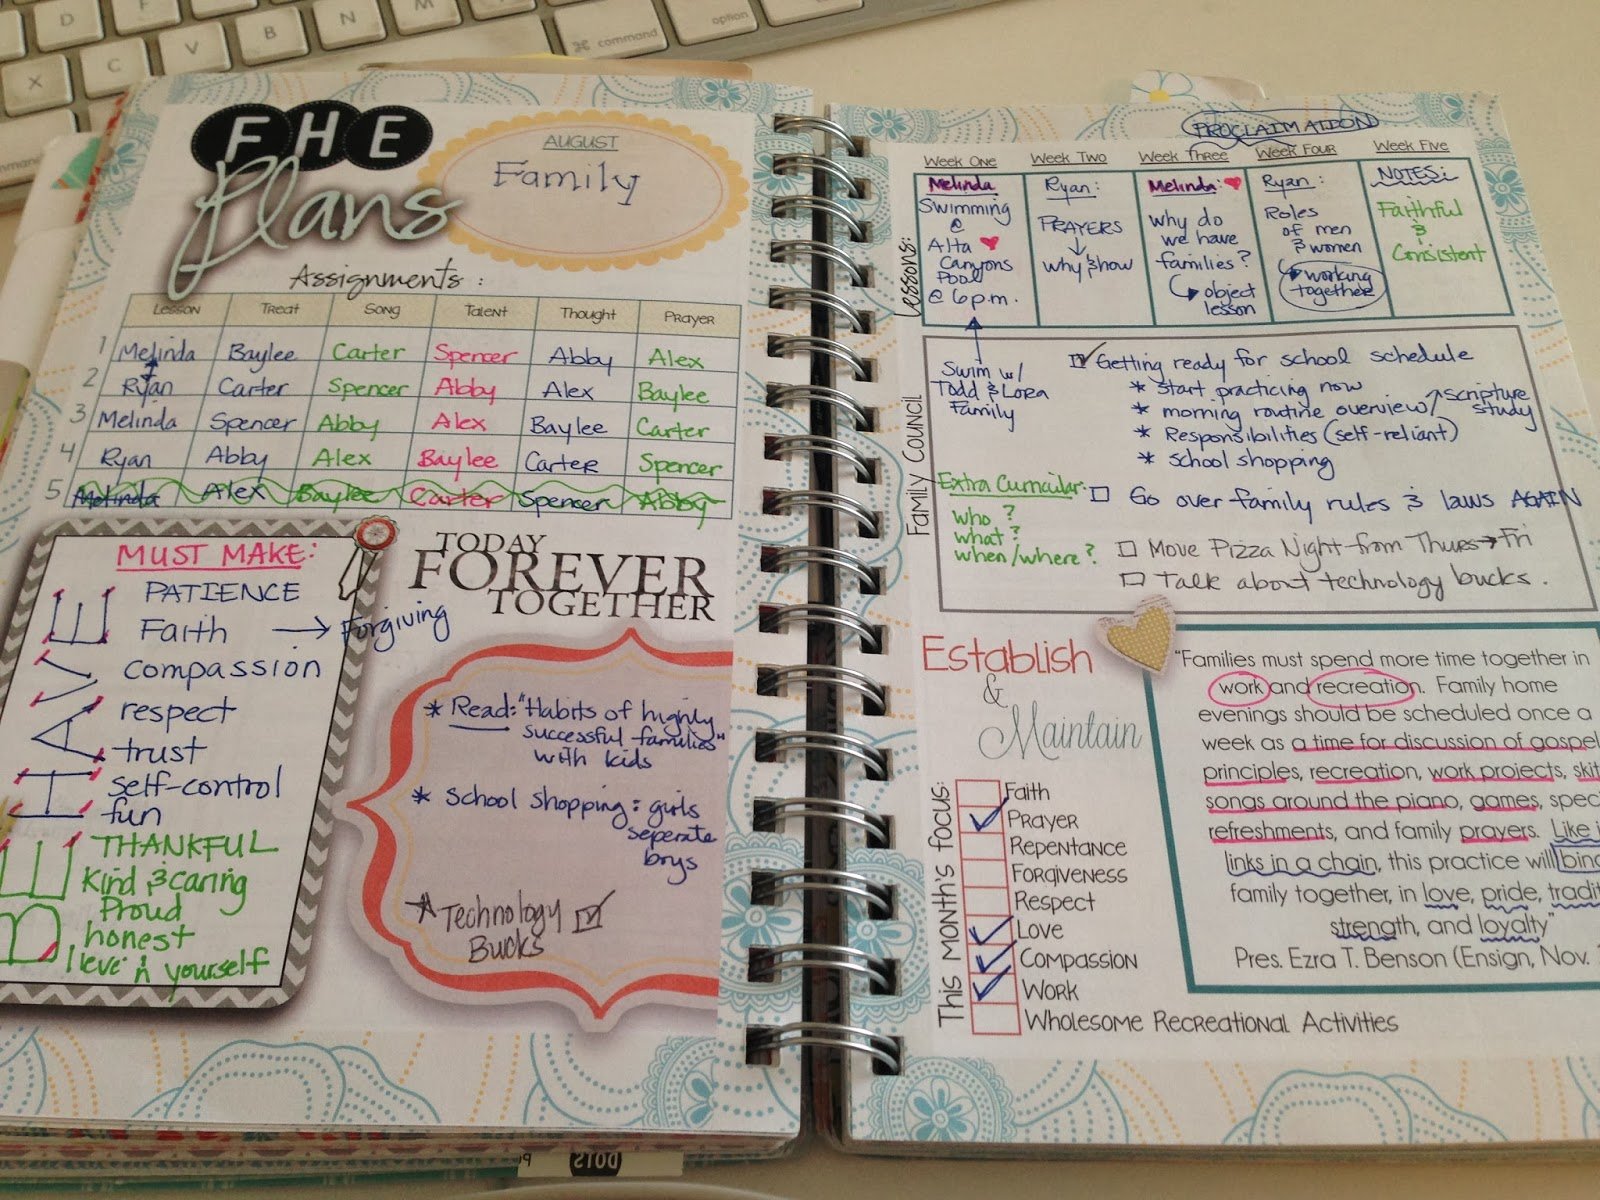 X
C
V
B
N
M
command
option
command
FHE
Plans
AUGUST
Family
Assignments:
Lesson Treat Song Talent Thought Prayer
1 Melinda Baylee Carter Spencer Abby Alex
2 Ryan Carter Spencer Abby Alex Baylee
3 Melinda Spencer Abby Alex Baylee Carter
4 Ryan Abby Alex Baylee Carter Spencer
5 Melinda Alex Baylee Carter Spencer Abby
MUST MAKE:
PATIENCE
Faith → Forgiving
compassion
respect
trust
self-control
fun
THANKFUL
Kind & caring
Proud
honest
in yourself
BELIEVE
TODAY
FOREVER
TOGETHER
* Read: "Habits of highly
successful families"
with kids
* School shopping: girls
seperate
boys
* Technology
Bucks
PROCLAIMATION
Week One Week Two Week Three Week Four Week Five
Lessons:
Melinda
Swimming
@
Alta
Canyons
Pool
@ 6 p.m.
Ryan:
PRAYERS
why & how
Melinda:
why do
we have
families?
object
lesson
Ryan:
Roles
of men
& women
working
together
NOTES:
Faithful
&
Consistent
Family Council
Swim w/
Todd & Lora
Family
Getting ready for school schedule
* Start practicing now
* morning routine overview scripture
study
* Responsibilities (self-reliant)
* School shopping
Extra Curricular:
who?
what?
when/where?
Go over family rules & laws AGAIN
Move Pizza Night from Thurs → Fri
Talk about technology bucks.
Establish
&
Maintain
This month's focus:
Faith
Prayer
Repentance
Forgiveness
Respect
Love
Compassion
Work
Wholesome Recreational Activities
"Families must spend more time together in
work and recreation. Family home
evenings should be scheduled once a
week as a time for discussion of gospel
principles, recreation, work projects, skit
songs around the piano, games, spec
refreshments, and family prayers. Like i
links in a chain, this practice will bind
family together, in love, pride, tradit
strength, and loyalty"
Pres. Ezra T. Benson (Ensign, Nov.